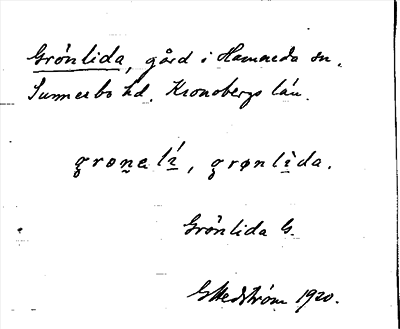 Grönlida, gård i Hamneda sn.
Sunnerbo hd. Kronobergs län.
grønelí, grønlìda.
Grönlida G.
G Hedström 1920.